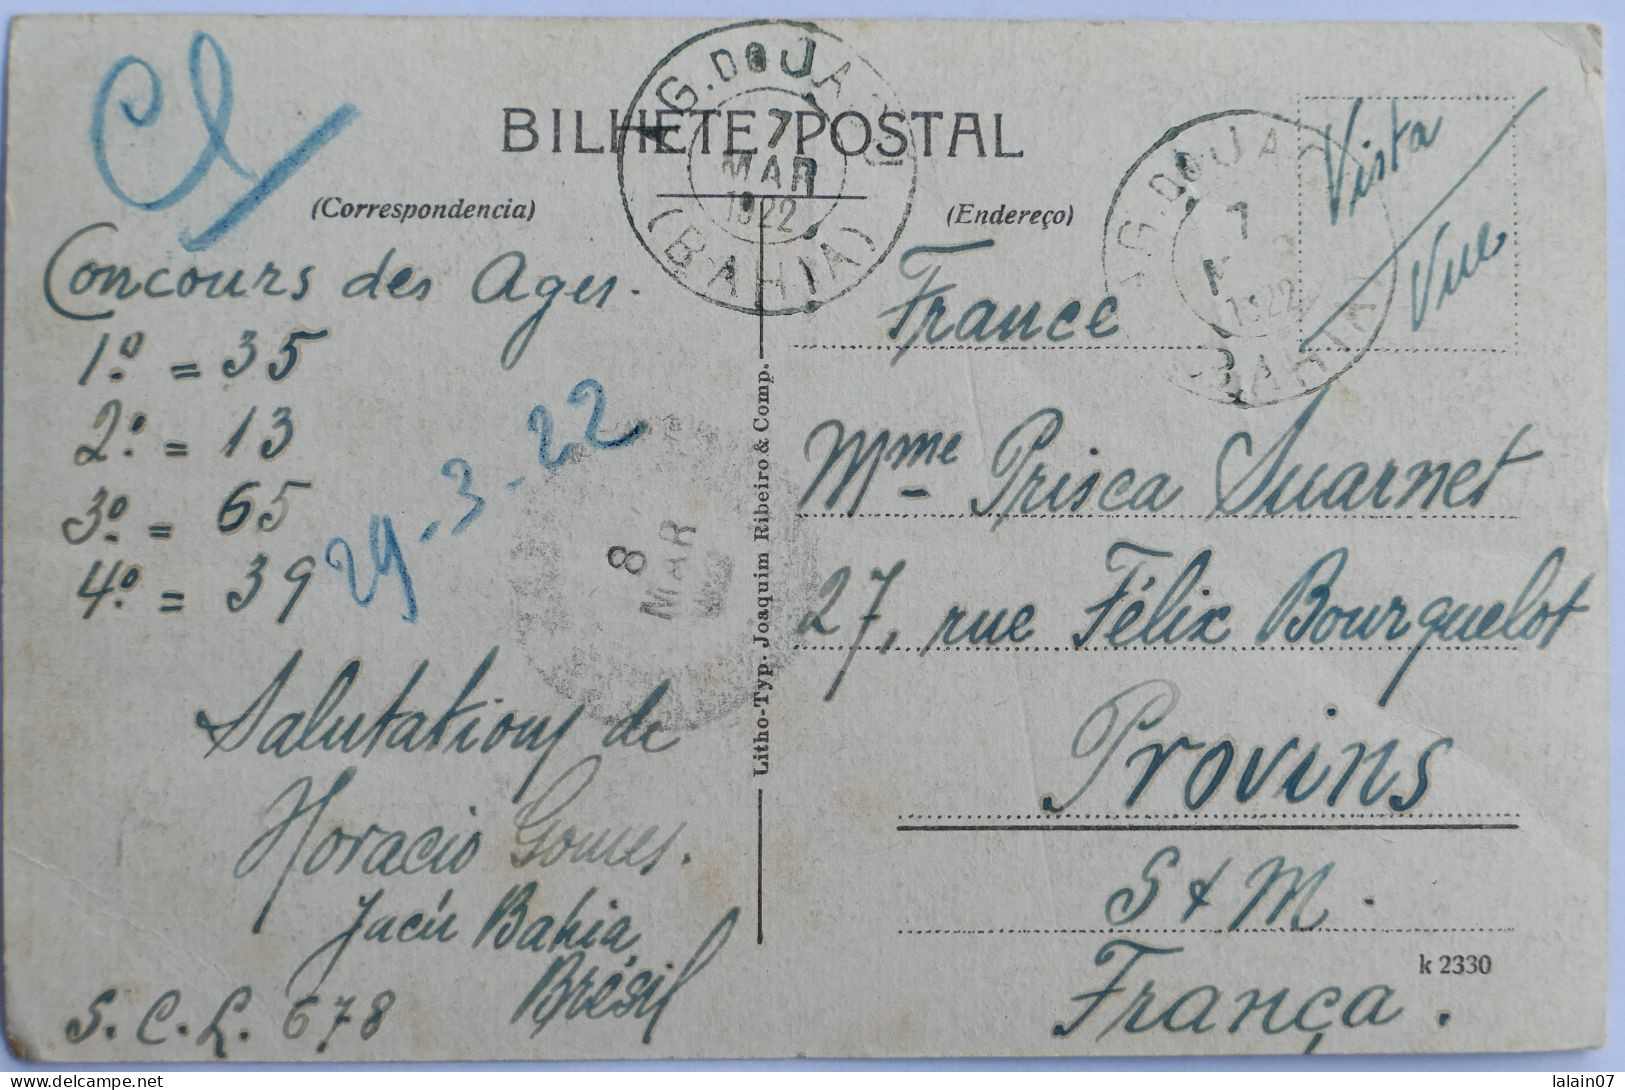 Cl
BILHETE POSTAL
AG. DO JACÚ
7
MAR
1922
(BAHIA)
(Correspondencia)
(Endereço)
AG. DO JAC
7
M
1922
BAHIA
Vista
Vue
Concours des Ages.
1º. = 35
2º. = 13
3º. = 65
4º. = 39
29-3-22
8
MAR
Salutations de
Horacio Gomes.
Jacú Bahia
Brésil
S. C. L. 678
Litho-Typ. Joaquim Ribeiro & Comp.
France
Mme Prisca Suarnet
27, rue Félix Bourquelot
Provins
S & M.
k 2330
França.
lalain07